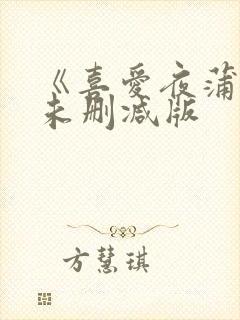 《喜爱夜蒲
未删减版
方慧琪